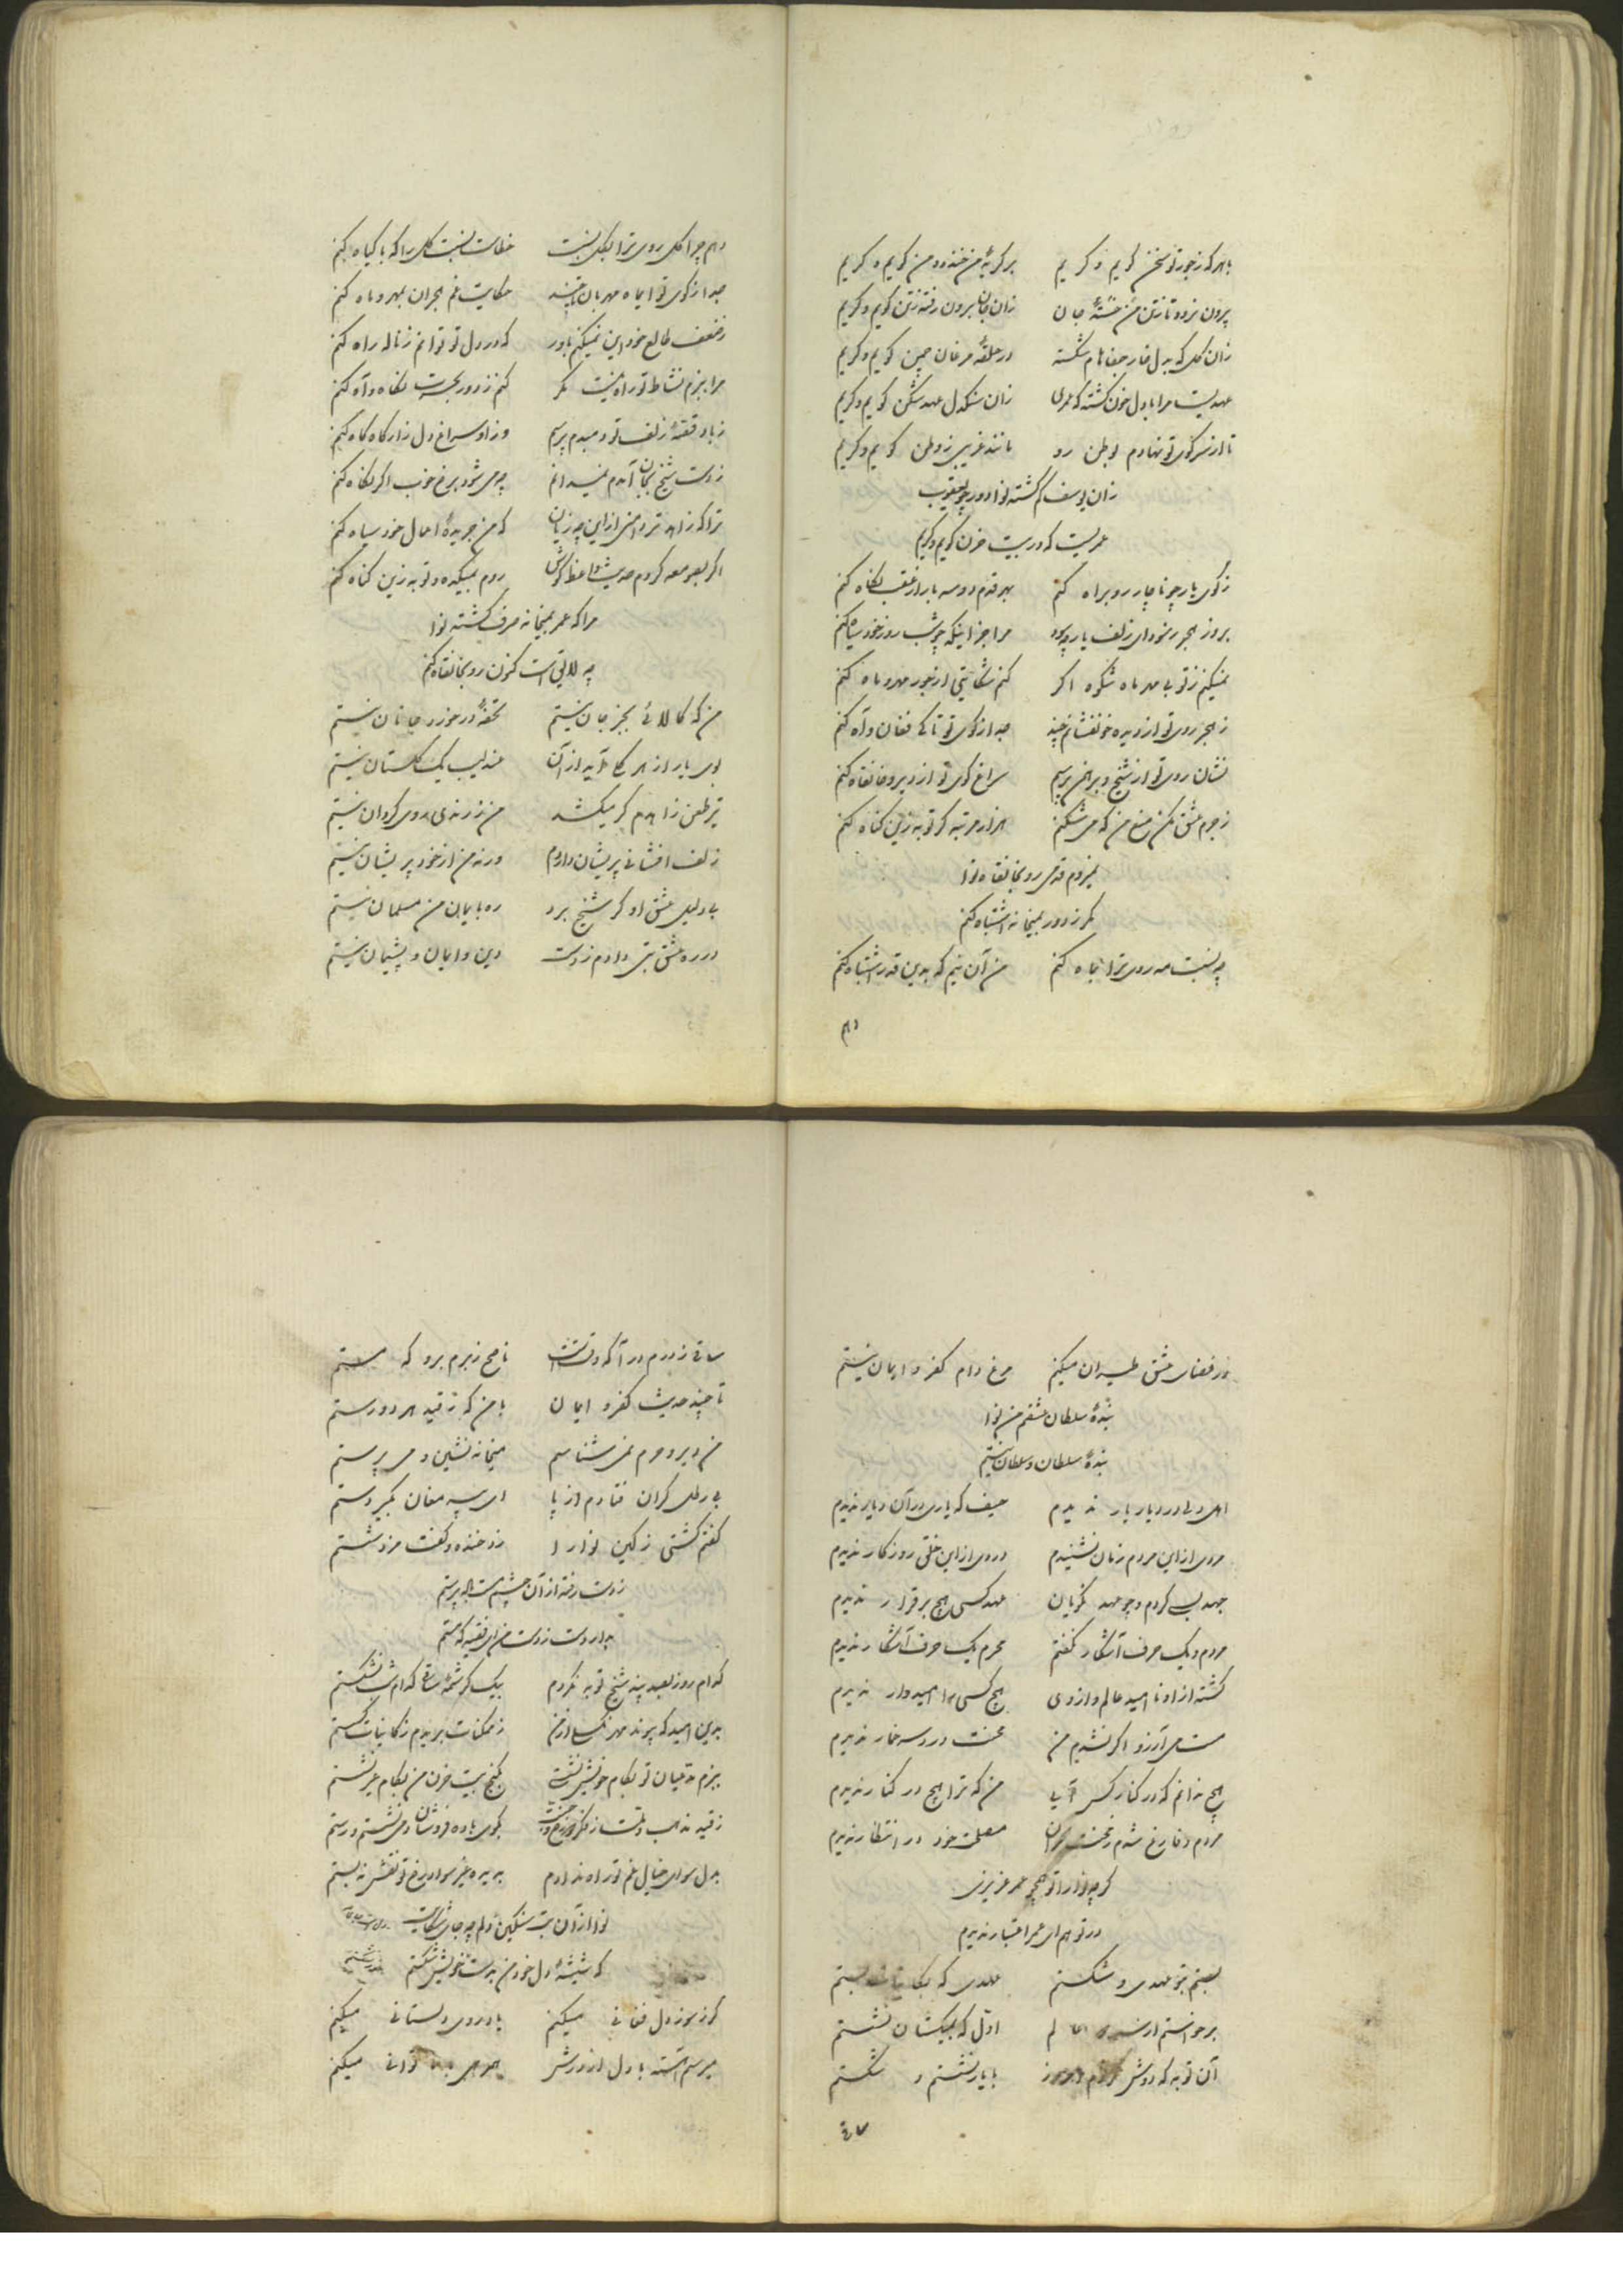 با هر که ز جور تو سخن گویم و گریم بر گریهٔ من خندد و من گویم و گریم
بیرون نرود تا ز تن من خستهٔ جان زان جان برون رفته ز تن گویم و گریم
زان گل که به دل خار جفاهام شکسته در حلقهٔ مرغان چمن گویم و گریم
عهدیست مرا با دل خون گشته که عمری زان سنگدل عهدشکن گویم و گریم
تا از سر کوی تو نهادم بوطن رو مانند غریبی ز وطن گویم و گریم
زان یوسف گم گشته نوا دور چو یعقوب
عمریست که در بیت حزن گویم و گریم
ز کوی یار چو ناچار رو براه کنم بهر قدم دو سه بار از عقب نگاه کنم
بروز هجر ز سودای زلف یار چه سود مرا جز اینکه چو شب روز خود سیاه کنم
نمیکنم ز تو بی مهر ماه شکوه اگر کنم شکایتی از جور مهر و ماه کنم
ز هجر روی تو از دیده خون فشانم چند جدا از کوی تو تا کی فغان و آه کنم
نشان روی تو از شیخ و برهمن پرسم سراغ کوی تو از دیر و خانقاه کنم
ز جرم عشق مکن منع من که می شکنم هزار مرتبه گر توبه زین گناه کنم
نمیروم قدمی رو بخانقاه نوا
مگر ز دور بمیخانه اشتباه کنم
چه نسبت مه روی ترا بماه کنم من آن نیم که بدین قدر اشتباه کنم
دهم
دهم چرا گل روی ترا بگل نسبت خطاست نسبت گل را که با گیاه کنم
جدا از کوی تو ای ماه مهربان تا چند حکایت غم هجران بمهر و ماه کنم
ز ضعف طالع خود این نمیکنم باور که در دل تو توانم ز ناله راه کنم
مرا ببزم نشاط تو راه نیست مگر کنم ز دور بحسرت نگاه و آه کنم
ز باد قصهٔ زلف تو دمبدم پرسم وز او سراغ دل زار گاه گاه کنم
ز دست شیخ بجان آمدم نمیدانم چه می شود برخ خوب اگر نگاه کنم
ترا که زاهد تردامنی از این چه زیان که من جریدهٔ اعمال خود سیاه کنم
اگر بصومعه کردم حدیث واعظ گوش روم بمیکده و توبه زین گناه کنم
مرا که عمر بمیخانه صرف گشته نوا
چه لایق است کنون رو بخانقاه کنم
من که کالائی بجز جان نیستم تحفهٔ در خورد جانان نیستم
بوی یار از هر کجا آید از آن عندلیب یک گلستان نیستم
تیر طعن زاهدم گر میکشد من ز رندی روی گردان نیستم
زلف افشانی پریشان داردم ورنه من از خود پریشان نیستم
بی دلیل عشق او گر شیخ برد ره بایمان من مسلمان نیستم
در ره عشق بتی دادم ز دست دین و ایمان و پشیمان نیستم
در فضای عشق طیران میکنم مرغ دام کفر و ایمان نیستم
بندهٔ سلطان عشقم من نوا
بندهٔ سلطان و سلطان نیستم
اهل دلی در دیار یار ندیدم حیف که یاری در آن دیار ندیدم
مردی از این مردم زمان نشنیدم دردی از این خلق روزگار ندیدم
جهد بسی کردم و چو عهد نکویان عهد کسی هیچ برقرار ندیدم
مردم و یک حرف آشکار نگفتم محرم یک حرف آشکار ندیدم
گشته از او نا امید عالم و از وی هیچ کسی را امیدوار ندیدم
مست می آرزو اگر نشدم من محنت درد سر خمار ندیدم
هیچ ندانم که در کنار کس آیی من که ترا هیچ در کنار ندیدم
مردم و فارغ شدم ز محنت هجران مصلحت خود در انتظار ندیدم
گر چه نوا را تو همچو عمر عزیزی
در تو هم ای عمر اعتبار ندیدم
بستم بتو عهدی و شکستم عهدی که بکاینات بستم
برخواستم از سر عالم اول که بمیکشان نشستم
آن توبه که دوش کردم امروز با یار نشستم و شکستم
ساقی
ساقی ز درم درآ که وقتست ناصح ز برم برو که مستم
تا چند حدیث کفر و ایمان با من که ز قید هر دو رستم
من دیر و حرم نمی شناسم میخانه نشین و می پرستم
بی رطل گران فتادم از پا ای پیر مغان بگیر دستم
گفتم کشتی ز کین نوا را زد خنده و گفت مزد شستم
ز دست رفته از آن چشم مست باده پرستم
بدار دست ز دست من ای فقیه که مستم
کدام روز بصد پند شیخ توبه نکردم بیک کرشمهٔ ساقی کدام شب نشکستم
بدین امید که پیوند مهر نگسلی از من ز ممکنات بریدم ز کاینات گسستم
ببزم مدعیان تو بکام خویش نشستی بکنج بیت حزن من بکام غیر نشستم
ز قید مذهب و ملت ز فکر دوزخ و جنت بکوی باده فروشان دمی نشستم و رستم
بدل سوای خیال غم تو راه ندادم بدیده غیر سواد رخ تو نقش نبستم
نوا از آن بت سنگین دلم چه جای شکایت
که شیشهٔ دل خود من بدست خویش شکستم
گر ز سوز دل فغانی میکنم یاد روی دلستانی میکنم